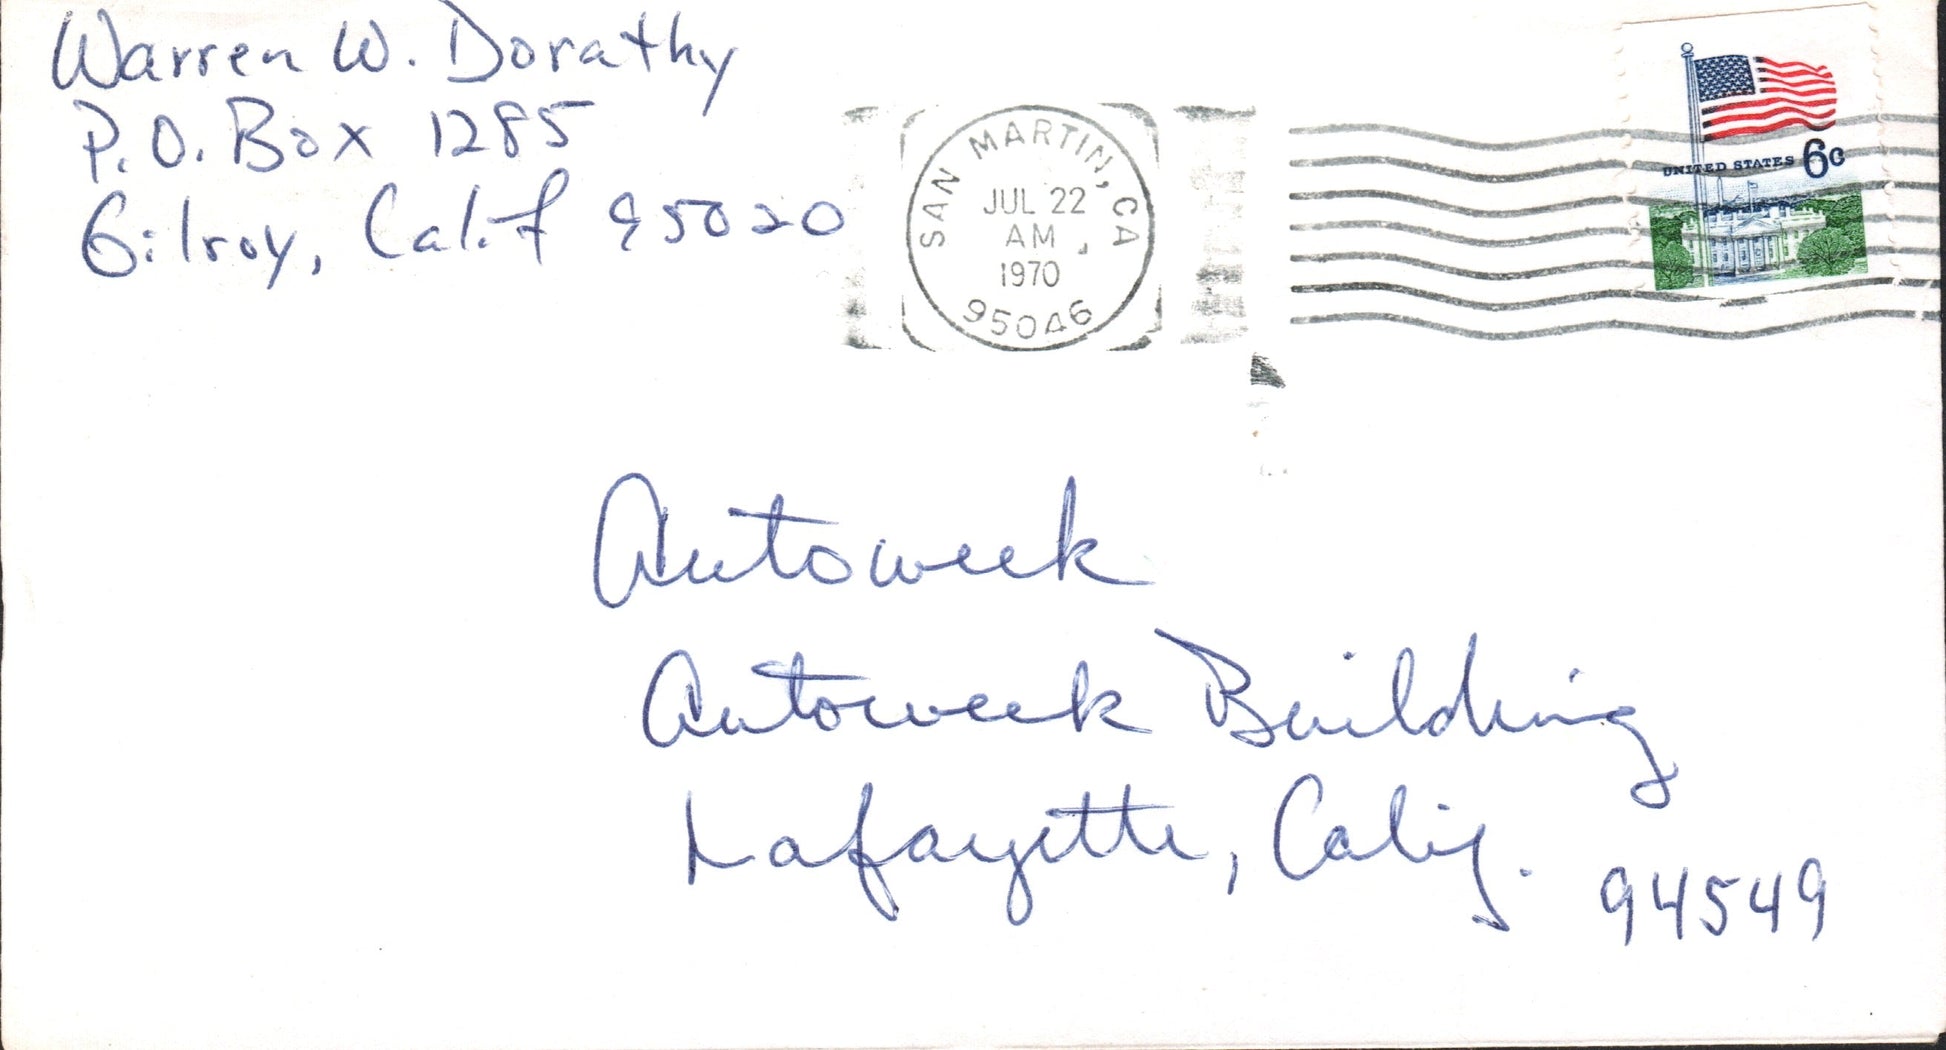 Warren W. Dorathy
P.O. Box 1285
Gilroy, Calif 95020
SAN MARTIN, CA
JUL 22
AM
1970
95046
UNITED STATES 6c
Autoweek
Autoweek Building
Lafayette, Calif.
94549